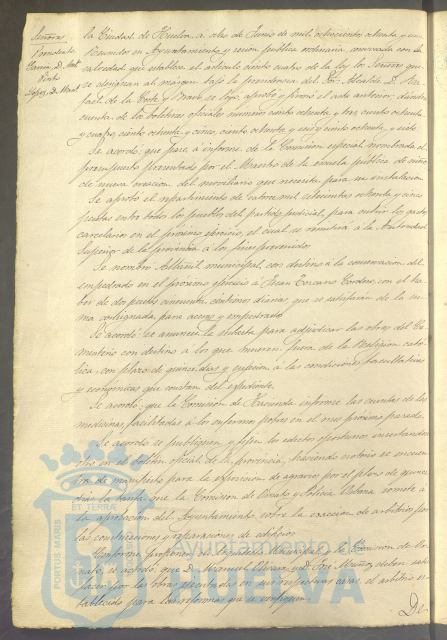 Señores
Presidente
Garcia D. Ant.º
Prieto
Lopez D. Man.l
la Ciudad de Huelva a ocho de Junio de mil ochocientos ochenta y uno
Reunidos en Ayuntamiento y sesion publica ordinaria, convocada con an-
telacion que establece el articulo ciento cuatro de la ley los Señores que
se designan al margen bajo la presidencia del Sr. Alcalde D. Ra-
fael de la Corte y Bravo se leyo, aprobo y firmó el acta anterior: dióse
cuenta de los boletines oficiales numeros ciento ochenta y tres, ciento ochenta
y cuatro, ciento ochenta y cinco, ciento ochenta y seis y ciento ochenta y siete
Se acordó, que pase á informe de la Comision especial nombrada el
presupuesto presentado por el Maestro de la escuela publica de niños
de nueva creacion del moviliario que necesita para su instalacion
Se aprobó el repartimiento de catorce mil setecientas ochenta y cinco
pesetas entre todos los pueblos del partido judicial, para cubrir los gastos
carcelarios en el proximo ejercicio, el cual se remitirá á la Autoridad
Superior de la provincia á los fines prevenidos
Se nombró Albañil municipal, con destino á la conservacion del
empedrado en el proximo ejercicio á Juan Toscano Cordero, con el ha-
ber de dos pesetas cincuenta centimos diarias, que se satisfarán de la su-
ma consignada para aceras y empedrado
Se acordó: se anuncie la subasta para adjudicar las obras del Ce-
menterio con destino á los que mueren fuera de la Religion cato-
lica, con plazo de quince dias y sujecion á las condiciones facultativas
y economicas que constan del expediente.
Se acordó: que la Comision de Hacienda informe las cuentas de las
medicinas facilitadas á los enfermos pobres en el mes proximo pasado.
Se acordó se publiquen y fijen los edictos oportunos insertandose
estos en el boletin oficial de la provincia, haciendo notorio se encuen-
tra de manifiesto para la esposicion de agravios por el plazo de quince
dias la tarifa que la Comision de Ornato y Policia Urbana somete á
la aprobacion del Ayuntamiento sobre la exaccion de arbitrios por
las construcciones y reparaciones de edificios
Conforme propone el Arquitecto Municipal y la Comision de Or-
nato, se acordó, que D. Manuel Alvarez y D. José Muñoz deben satis-
facer por las obras ejecutadas en sus respectivas casas, el arbitrio es-
tablecido para las reformas que se consiguen
De
PORTUS MARIS
ET TERRÆ
Ayuntamiento de
HUELVA